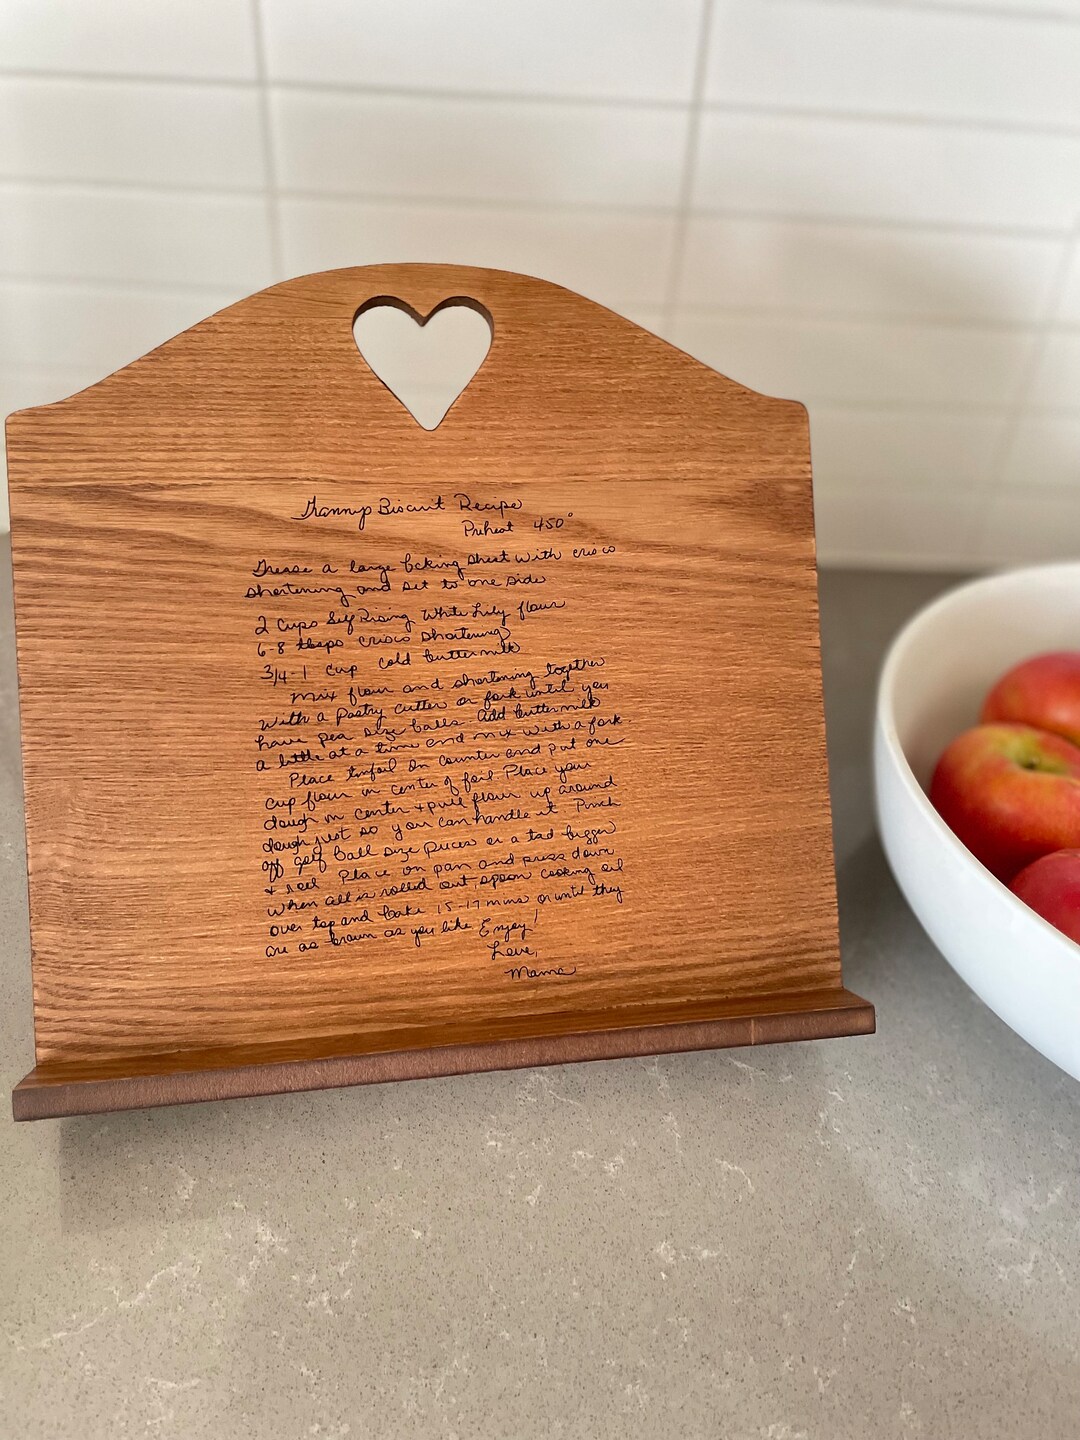 Grannys Biscuit Recipe
Preheat 450°
Grease a large baking sheet with crisco
shortening and set to one side
2 Cups Self Rising White Lily flour
6-8 tbsps crisco shortening
3/4-1 cup cold buttermilk
Mix flour and shortening together
with a pastry cutter or fork until you
have pea size balls. Add buttermilk
a little at a time and mix with a fork.
Place tinfoil on counter and put one
cup flour in center of foil Place your
dough in center + pull flour up around
dough just so you can handle it Pinch
off golf ball size pieces or a tad bigger
+ roll Place on pan and press down
When all is rolled out, spoon cooking oil
over top and bake 15-17 mins or until they
are as brown as you like Enjoy!
Love,
Mama